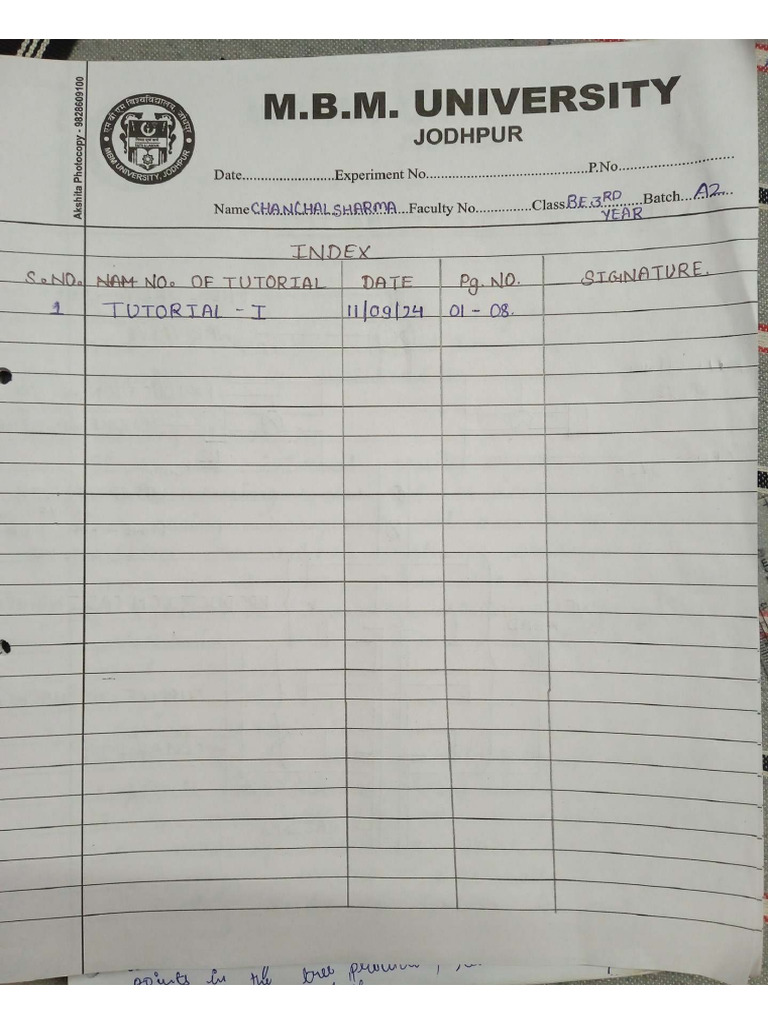 Akshita Photocopy - 9828609100
एम बी एम विश्वविद्यालय, जोधपुर
MBM UNIVERSITY, JODHPUR
M.B.M. UNIVERSITY
JODHPUR
Date..........................Experiment No..............................................P.No.................................
Name CHANCHAL SHARMA...Faculty No................Class BE.3RD YEAR.........Batch...A2....
INDEX
S.NO. NAM NO. OF TUTORIAL DATE Pg. NO. SIGNATURE.
1 TUTORIAL - I 11/09/24 01 - 08.
points in the